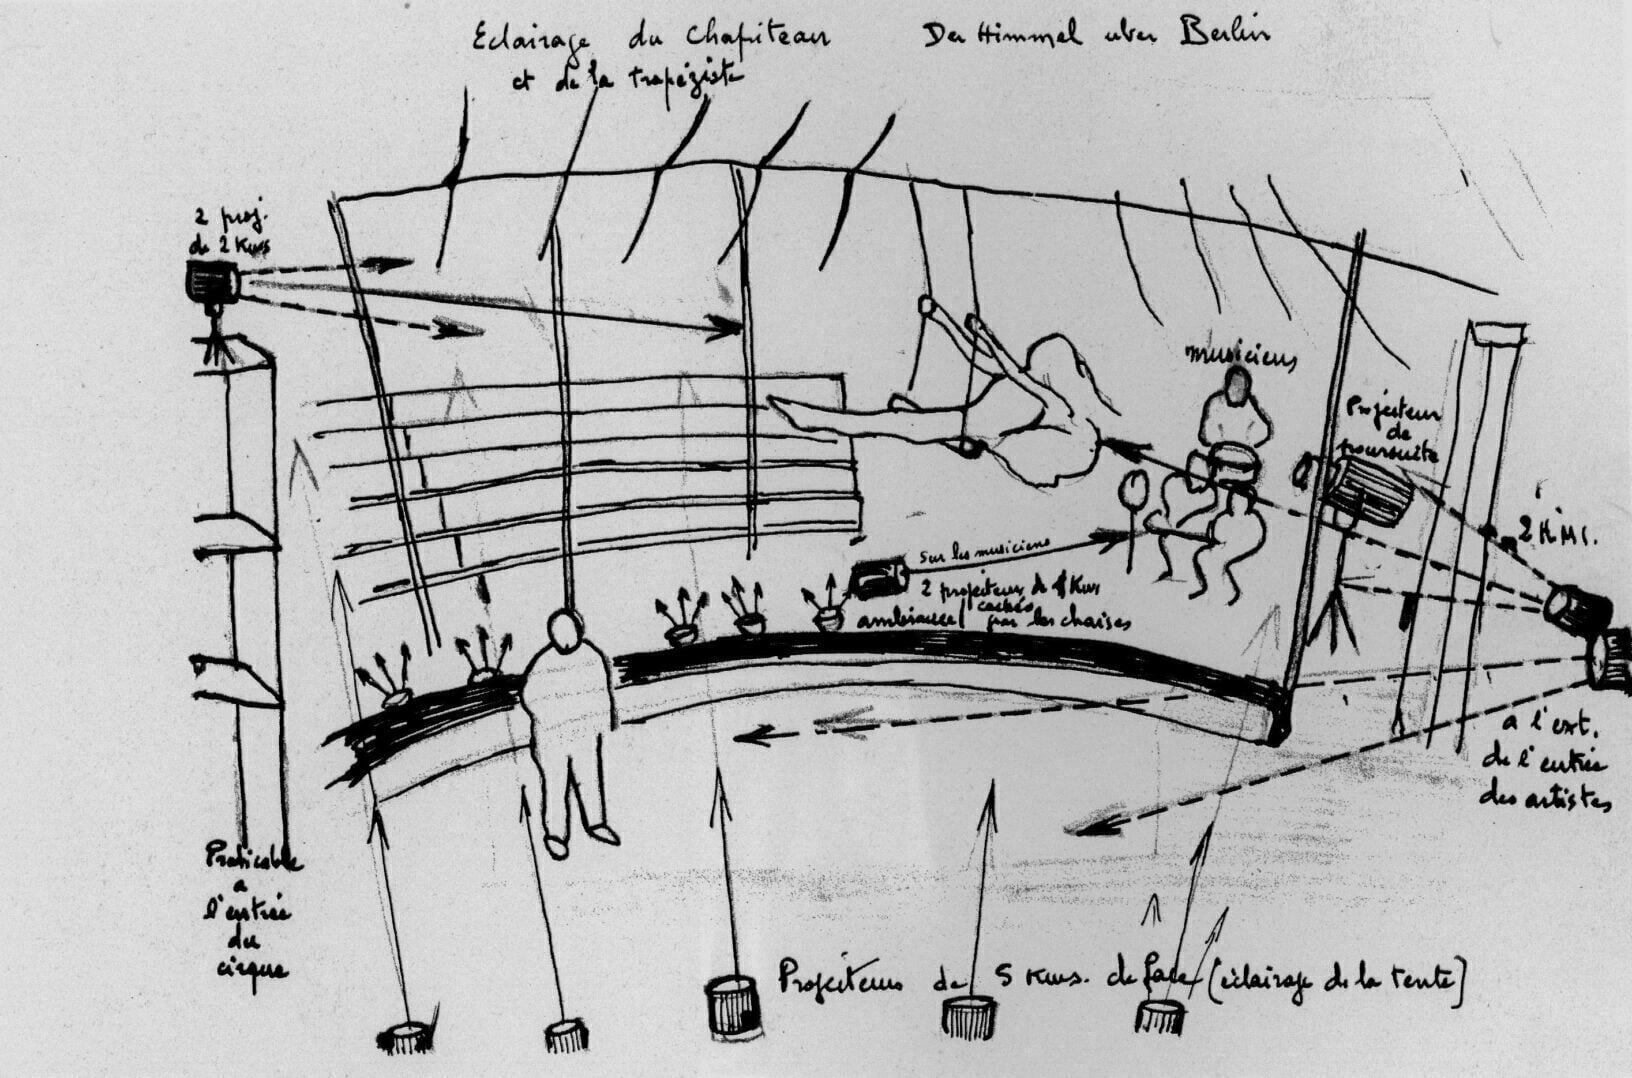 Eclairage du Chapiteau
et de la trapéziste
Der Himmel uber Berlin
2 proj.
de 2 Kws
musiciens
Projecteur
de
poursuite
2 KWS.
Sur les musiciens
2 projecteurs de 1 Kws
cachés
ambiance par les chaises
a l'ext.
de l'entrée
des artistes
Praticable
a
l'entrée
du
cirque
Projecteurs de 5 Kws. de face (éclairage de la tente)